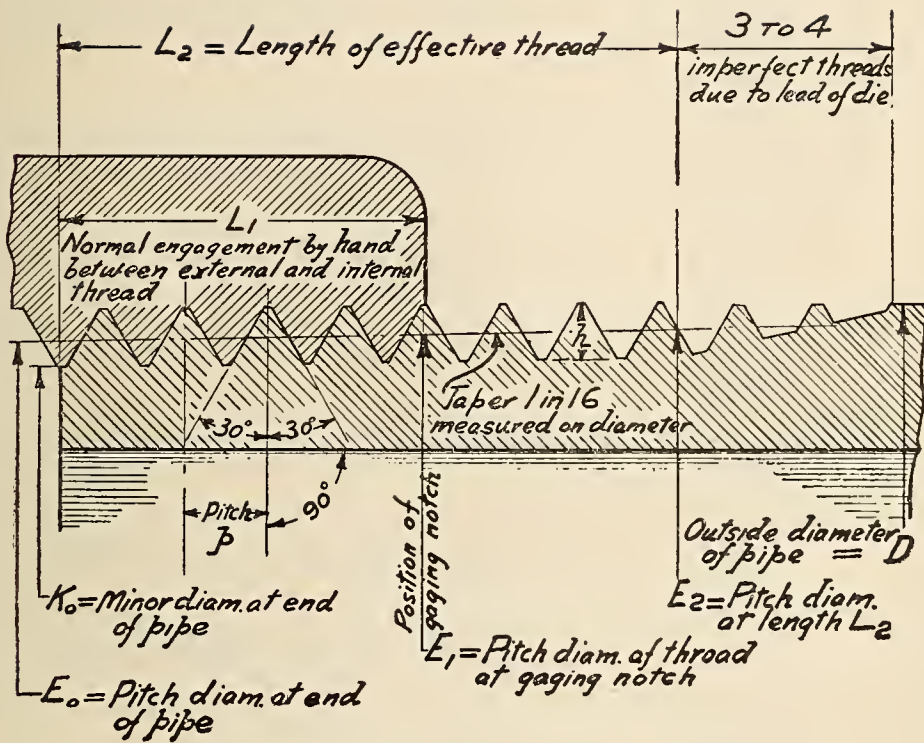 L2 = Length of effective thread
3 TO 4
imperfect threads
due to lead of die
L1
Normal engagement by hand
between external and internal
thread
h
Taper 1 in 16
measured on diameter
30° 30°
90°
Pitch
p
Position of
gaging notch
Outside diameter
of pipe = D
K0=Minor diam. at end
of pipe
E2=Pitch diam.
at length L2
E1=Pitch diam. of throad
at gaging notch
E0=Pitch diam. at end
of pipe